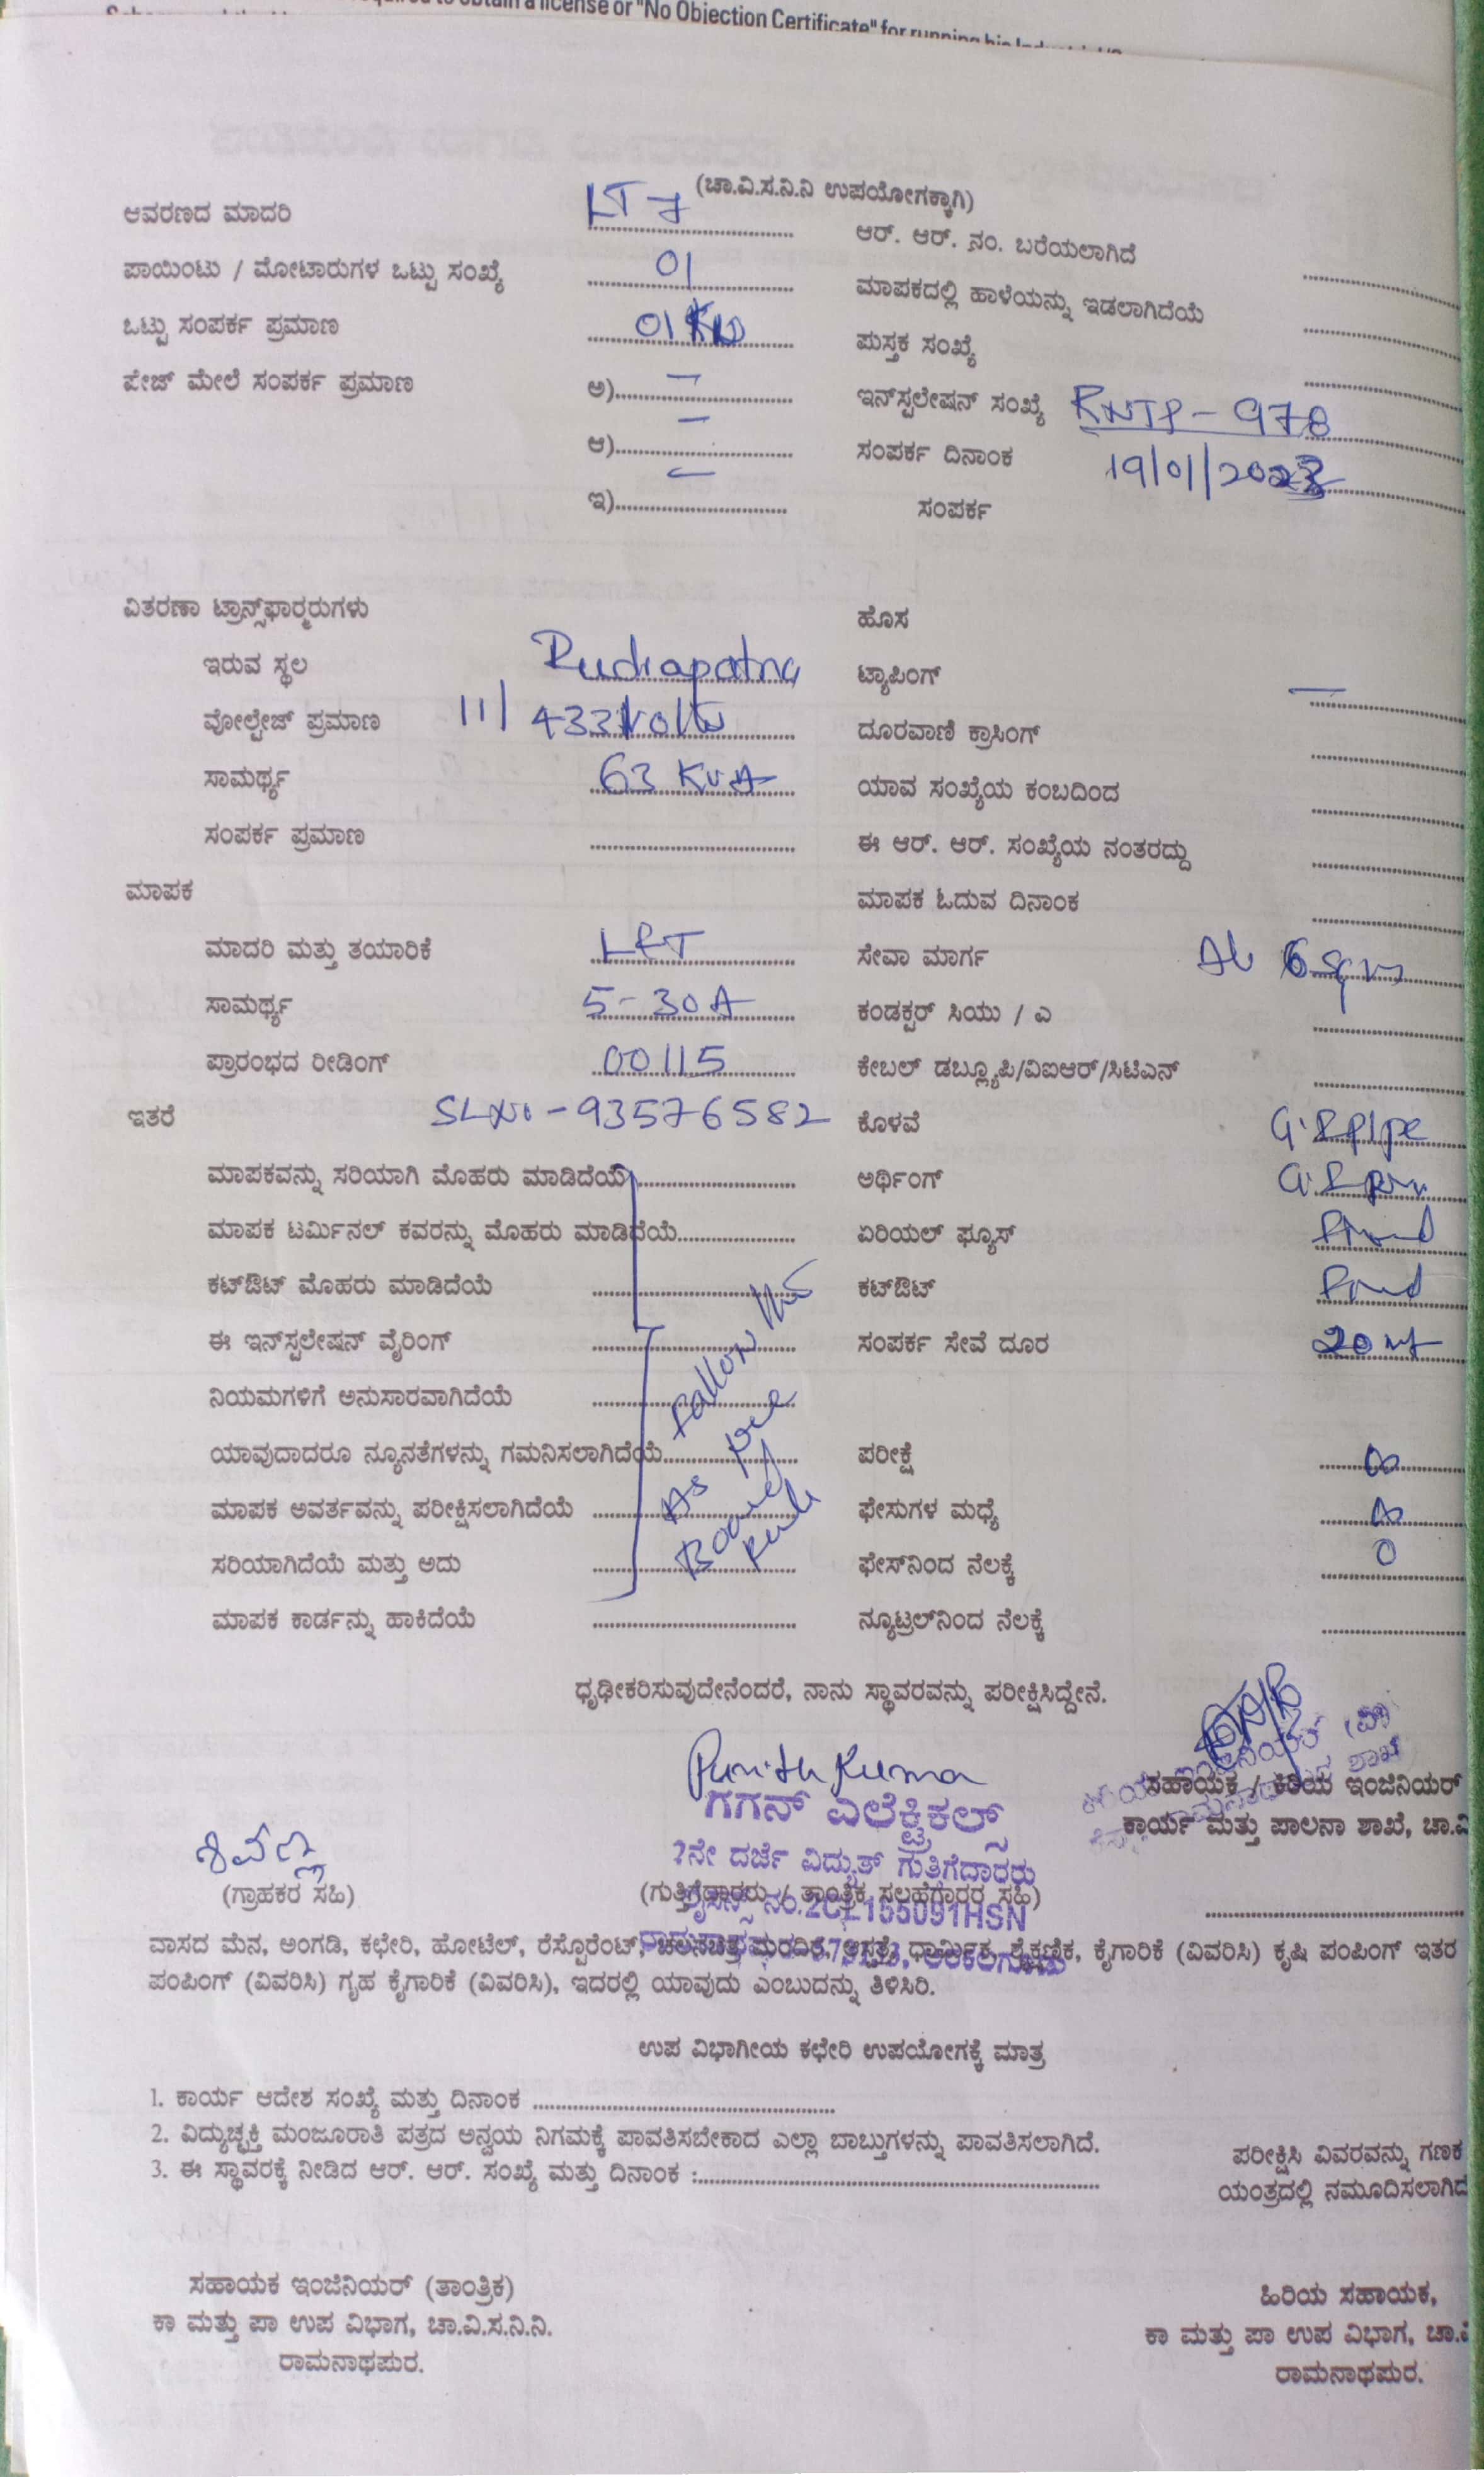 a license or "No Objection Certificate" for running his
(ಚಾ.ವಿ.ಸ.ನಿ.ನಿ ಉಪಯೋಗಕ್ಕಾಗಿ)
ಆವರಣದ ಮಾದರಿ LT 7 ಆರ್. ಆರ್. ನಂ. ಬರೆಯಲಾಗಿದೆ
ಪಾಯಿಂಟು / ಮೋಟಾರುಗಳ ಒಟ್ಟು ಸಂಖ್ಯೆ 01 ಮಾಪಕದಲ್ಲಿ ಹಾಳೆಯನ್ನು ಇಡಲಾಗಿದೆಯೆ
ಒಟ್ಟು ಸಂಪರ್ಕ ಪ್ರಮಾಣ 01 KW ಪುಸ್ತಕ ಸಂಖ್ಯೆ
ಪೇಜ್ ಮೇಲೆ ಸಂಪರ್ಕ ಪ್ರಮಾಣ ಅ) – ಇನ್‌ಸ್ಟಲೇಷನ್ ಸಂಖ್ಯೆ RNTP-978
ಆ) – ಸಂಪರ್ಕ ದಿನಾಂಕ 19/01/2023
ಇ) – ಸಂಪರ್ಕ
ವಿತರಣಾ ಟ್ರಾನ್ಸ್‌ಫಾರ್‍ಮರುಗಳು ಹೊಸ
ಇರುವ ಸ್ಥಲ Rudrapatna ಟ್ಯಾಪಿಂಗ್ –
ವೋಲ್ಟೇಜ್ ಪ್ರಮಾಣ 11/433 Volts ದೂರವಾಣಿ ಕ್ರಾಸಿಂಗ್
ಸಾಮರ್ಥ್ಯ 63 KVA ಯಾವ ಸಂಖ್ಯೆಯ ಕಂಬದಿಂದ
ಸಂಪರ್ಕ ಪ್ರಮಾಣ ಈ ಆರ್. ಆರ್. ಸಂಖ್ಯೆಯ ನಂತರದ್ದು
ಮಾಪಕ ಮಾಪಕ ಓದುವ ದಿನಾಂಕ
ಮಾದರಿ ಮತ್ತು ತಯಾರಿಕೆ L&T ಸೇವಾ ಮಾರ್ಗ
ಸಾಮರ್ಥ್ಯ 5-30A ಕಂಡಕ್ಟರ್ ಸಿಯು / ಎ
ಪ್ರಾರಂಭದ ರೀಡಿಂಗ್ 00115 ಕೇಬಲ್ ಡಬ್ಲ್ಯೂಪಿ/ವಿಐಆರ್/ಸಿಟಿಎನ್
ಇತರೆ SLNo-93576582 ಕೊಳವೆ G.I pipe
ಮಾಪಕವನ್ನು ಸರಿಯಾಗಿ ಮೊಹರು ಮಾಡಿದೆಯೆ ಅರ್ಥಿಂಗ್
ಮಾಪಕ ಟರ್ಮಿನಲ್ ಕವರನ್ನು ಮೊಹರು ಮಾಡಿದೆಯೆ ಏರಿಯಲ್ ಫ್ಯೂಸ್
ಕಟ್‌ಔಟ್ ಮೊಹರು ಮಾಡಿದೆಯೆ ಕಟ್‌ಔಟ್
ಈ ಇನ್‌ಸ್ಟಲೇಷನ್ ವೈರಿಂಗ್ ಸಂಪರ್ಕ ಸೇವೆ ದೂರ 20 mt
ನಿಯಮಗಳಿಗೆ ಅನುಸಾರವಾಗಿದೆಯೆ
ಯಾವುದಾದರೂ ನ್ಯೂನತೆಗಳನ್ನು ಗಮನಿಸಲಾಗಿದೆಯೆ ಪರೀಕ್ಷೆ ∞
ಮಾಪಕ ಅವರ್ತವನ್ನು ಪರೀಕ್ಷಿಸಲಾಗಿದೆಯೆ As per ಫೇಸುಗಳ ಮಧ್ಯೆ ∞
ಸರಿಯಾಗಿದೆಯೆ ಮತ್ತು ಅದು Board ಫೇಸ್‌ನಿಂದ ನೆಲಕ್ಕೆ 0
ಮಾಪಕ ಕಾರ್ಡನ್ನು ಹಾಕಿದೆಯೆ ನ್ಯೂಟ್ರಲ್‌ನಿಂದ ನೆಲಕ್ಕೆ
ಧೃಢೀಕರಿಸುವುದೇನೆಂದರೆ, ನಾನು ಸ್ಥಾವರವನ್ನು ಪರೀಕ್ಷಿಸಿದ್ದೇನೆ.
Punith Kumar
ಗಗನ್ ಎಲೆಕ್ಟ್ರಿಕಲ್ಸ್ ಸಹಾಯಕ / ಕಿರಿಯ ಇಂಜಿನಿಯರ್
ಕಾರ್ಯ ಮತ್ತು ಪಾಲನಾ ಶಾಖೆ, ಚಾ.ವಿ
ಶಿವಣ್ಣ 2ನೇ ದರ್ಜೆ ವಿದ್ಯುತ್ ಗುತ್ತಿಗೆದಾರರು
(ಗ್ರಾಹಕರ ಸಹಿ) (ಗುತ್ತಿಗೆದಾರರು / ತಾಂತ್ರಿಕ ಸಲಹೆಗಾರರ ಸಹಿ)
ಲೈಸೆನ್ಸ್ ನಂ.2CL155091HSN
ವಾಸದ ಮೆನ, ಅಂಗಡಿ, ಕಛೇರಿ, ಹೋಟೆಲ್, ರೆಸ್ಟೊರೆಂಟ್, ಚಲನಚಿತ್ರ ಮಂದಿರ, ಆಸ್ಪತ್ರೆ, ಧಾರ್ಮಿಕ, ಶೈಕ್ಷಣಿಕ, ಕೈಗಾರಿಕೆ (ವಿವರಿಸಿ) ಕೃಷಿ ಪಂಪಿಂಗ್ ಇತರ
ಪಂಪಿಂಗ್ (ವಿವರಿಸಿ) ಗೃಹ ಕೈಗಾರಿಕೆ (ವಿವರಿಸಿ), ಇದರಲ್ಲಿ ಯಾವುದು ಎಂಬುದನ್ನು ತಿಳಿಸಿರಿ.
ಉಪ ವಿಭಾಗೀಯ ಕಛೇರಿ ಉಪಯೋಗಕ್ಕೆ ಮಾತ್ರ
1. ಕಾರ್ಯ ಆದೇಶ ಸಂಖ್ಯೆ ಮತ್ತು ದಿನಾಂಕ
2. ವಿದ್ಯುಚ್ಛಕ್ತಿ ಮಂಜೂರಾತಿ ಪತ್ರದ ಅನ್ವಯ ನಿಗಮಕ್ಕೆ ಪಾವತಿಸಬೇಕಾದ ಎಲ್ಲಾ ಬಾಬ್ತುಗಳನ್ನು ಪಾವತಿಸಲಾಗಿದೆ.
3. ಈ ಸ್ಥಾವರಕ್ಕೆ ನೀಡಿದ ಆರ್. ಆರ್. ಸಂಖ್ಯೆ ಮತ್ತು ದಿನಾಂಕ :
ಪರೀಕ್ಷಿಸಿ ವಿವರವನ್ನು ಗಣಕ
ಯಂತ್ರದಲ್ಲಿ ನಮೂದಿಸಲಾಗಿದೆ
ಸಹಾಯಕ ಇಂಜಿನಿಯರ್ (ತಾಂತ್ರಿಕ) ಹಿರಿಯ ಸಹಾಯಕ,
ಕಾ ಮತ್ತು ಪಾ ಉಪ ವಿಭಾಗ, ಚಾ.ವಿ.ಸ.ನಿ.ನಿ. ಕಾ ಮತ್ತು ಪಾ ಉಪ ವಿಭಾಗ, ಚಾ.
ರಾಮನಾಥಪುರ. ರಾಮನಾಥಪುರ.